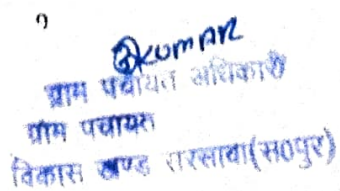 KUMAR
ग्राम पंचायत अधिकारी
ग्राम पंचायत
विकास खण्ड सरसावा(स०पुर)